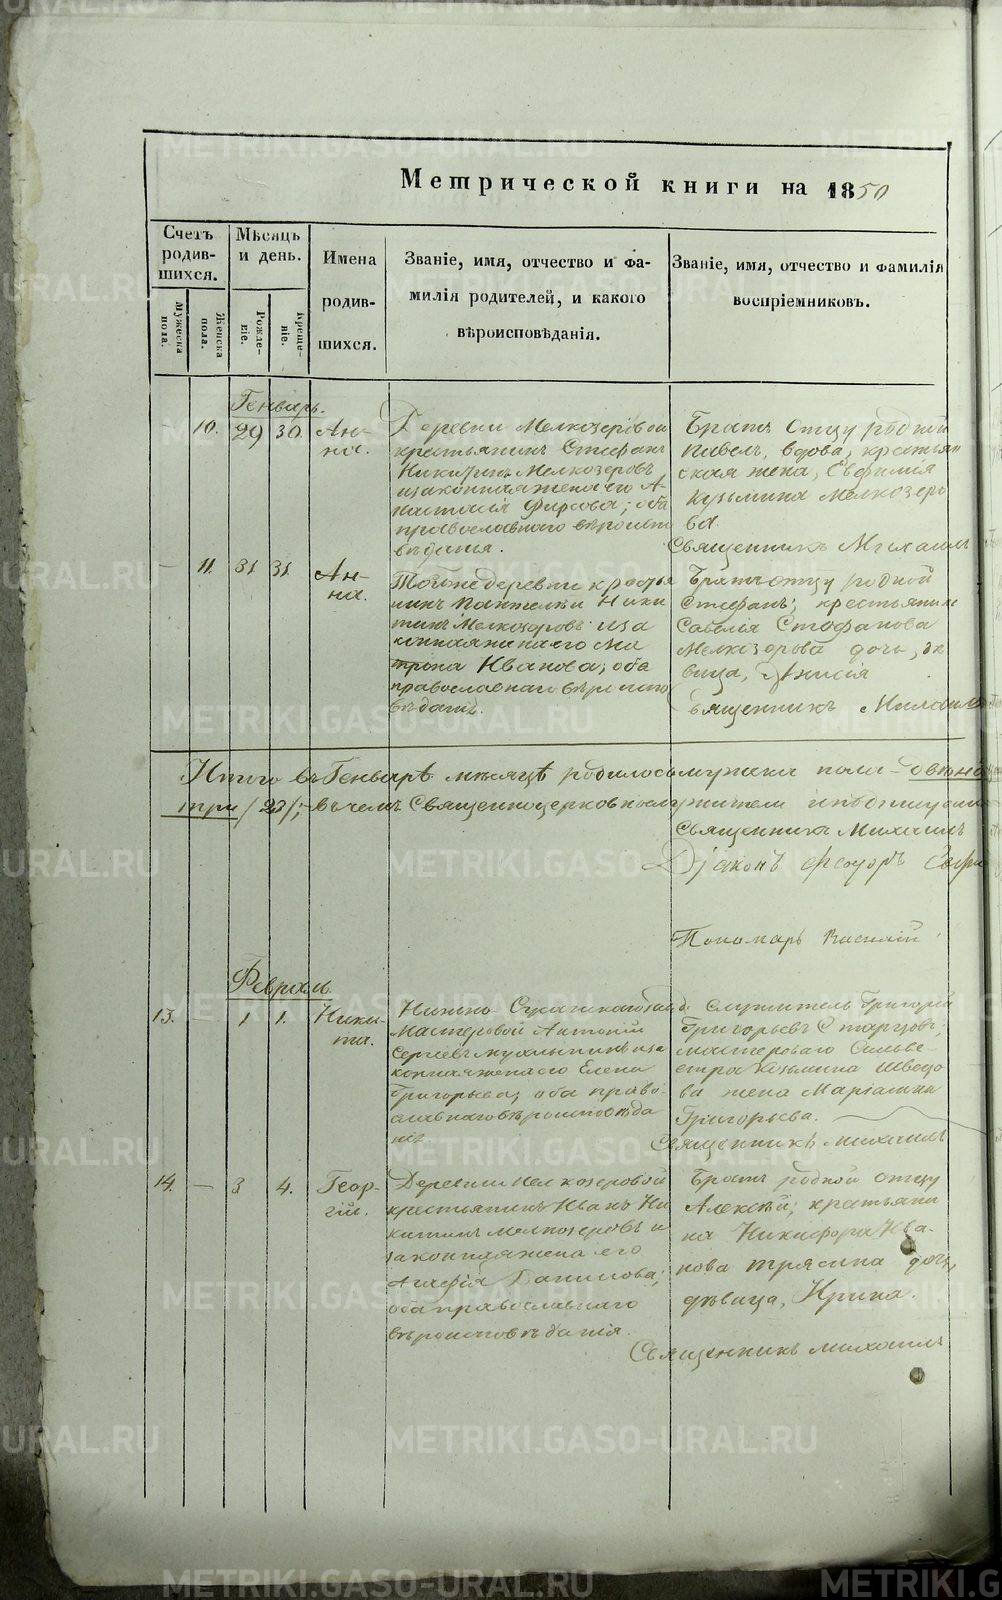 Метрической книги на 1850
Счетъ родив-шихся.
Мужеска пола.
Женска пола.
Мѣсяцъ и день.
Рожде-ніе.
Креще-ніе.
Имена
родив-
шихся.
Званіе, имя, отчество и фа-
милія родителей, и какого
вѣроисповѣданія.
Званіе, имя, отчество и фамилія
воспріемниковъ.
Генварь.
10. 29 30. Ан-
на.
Деревни Мелкозеровой
крестьянинъ Стефанъ
Никитинъ Мелкозеровъ
и законная жена его А-
настасія Фирсова; оба
православнаго вѣроиспо
вѣданья.
Братъ отцу родной
Павелъ, вдова, крестьян
ская жена, Евфимія
Кузьмина Мелкозеро
ва.
Священникъ Михаилъ
11. 31 31. Ан-
на.
Тойже деревни крестья
нинъ Пантелей Ники
тинъ Мелкозеровъ и за
конная жена его Ма
трона Иванова; оба
православнаго вѣроиспо
вѣданія.
Братъ отцу родной
Стефанъ; крестьянина
Савелія Стефанова
Мелкозерова дочь, дѣ
вица, Анисія
Священникъ Михаилъ
Итого въ Генварѣ мѣсяцѣ родилось мужеска пола
три /23/; въ чемъ Священноцерковнослужители и подпишуемся
Священникъ Михаилъ
Діаконъ Феодоръ
Пономарь Василій
Февраль.
13. 1 1. Ники-
та.
Нижно
Мастеровой Антоній
Сергѣевъ и за
конная жена его Елена
Григорьева; оба право-
славнаго вѣроисповѣда
нія.
служитель Григорій
Григорьевъ Старцовъ;
мастероваго Сильве-
стра Козьмина Шведо
ва жена Маріамна
Григорьева.
Священникъ Михаилъ
14. 3 4. Геор-
гій.
Деревни Мелкозеровой
крестьянинъ Иванъ Ни
китинъ Мелкозеровъ и
законная жена его
Агафія Данилова;
оба православнаго
вѣроисповѣданія.
Братъ родной отцу
Алексѣй; крестьяни
на Никифора Ива-
нова Трясина дочь,
дѣвица, Ирина.
Священникъ Михаилъ
METRIKI.GASO-URAL.RU